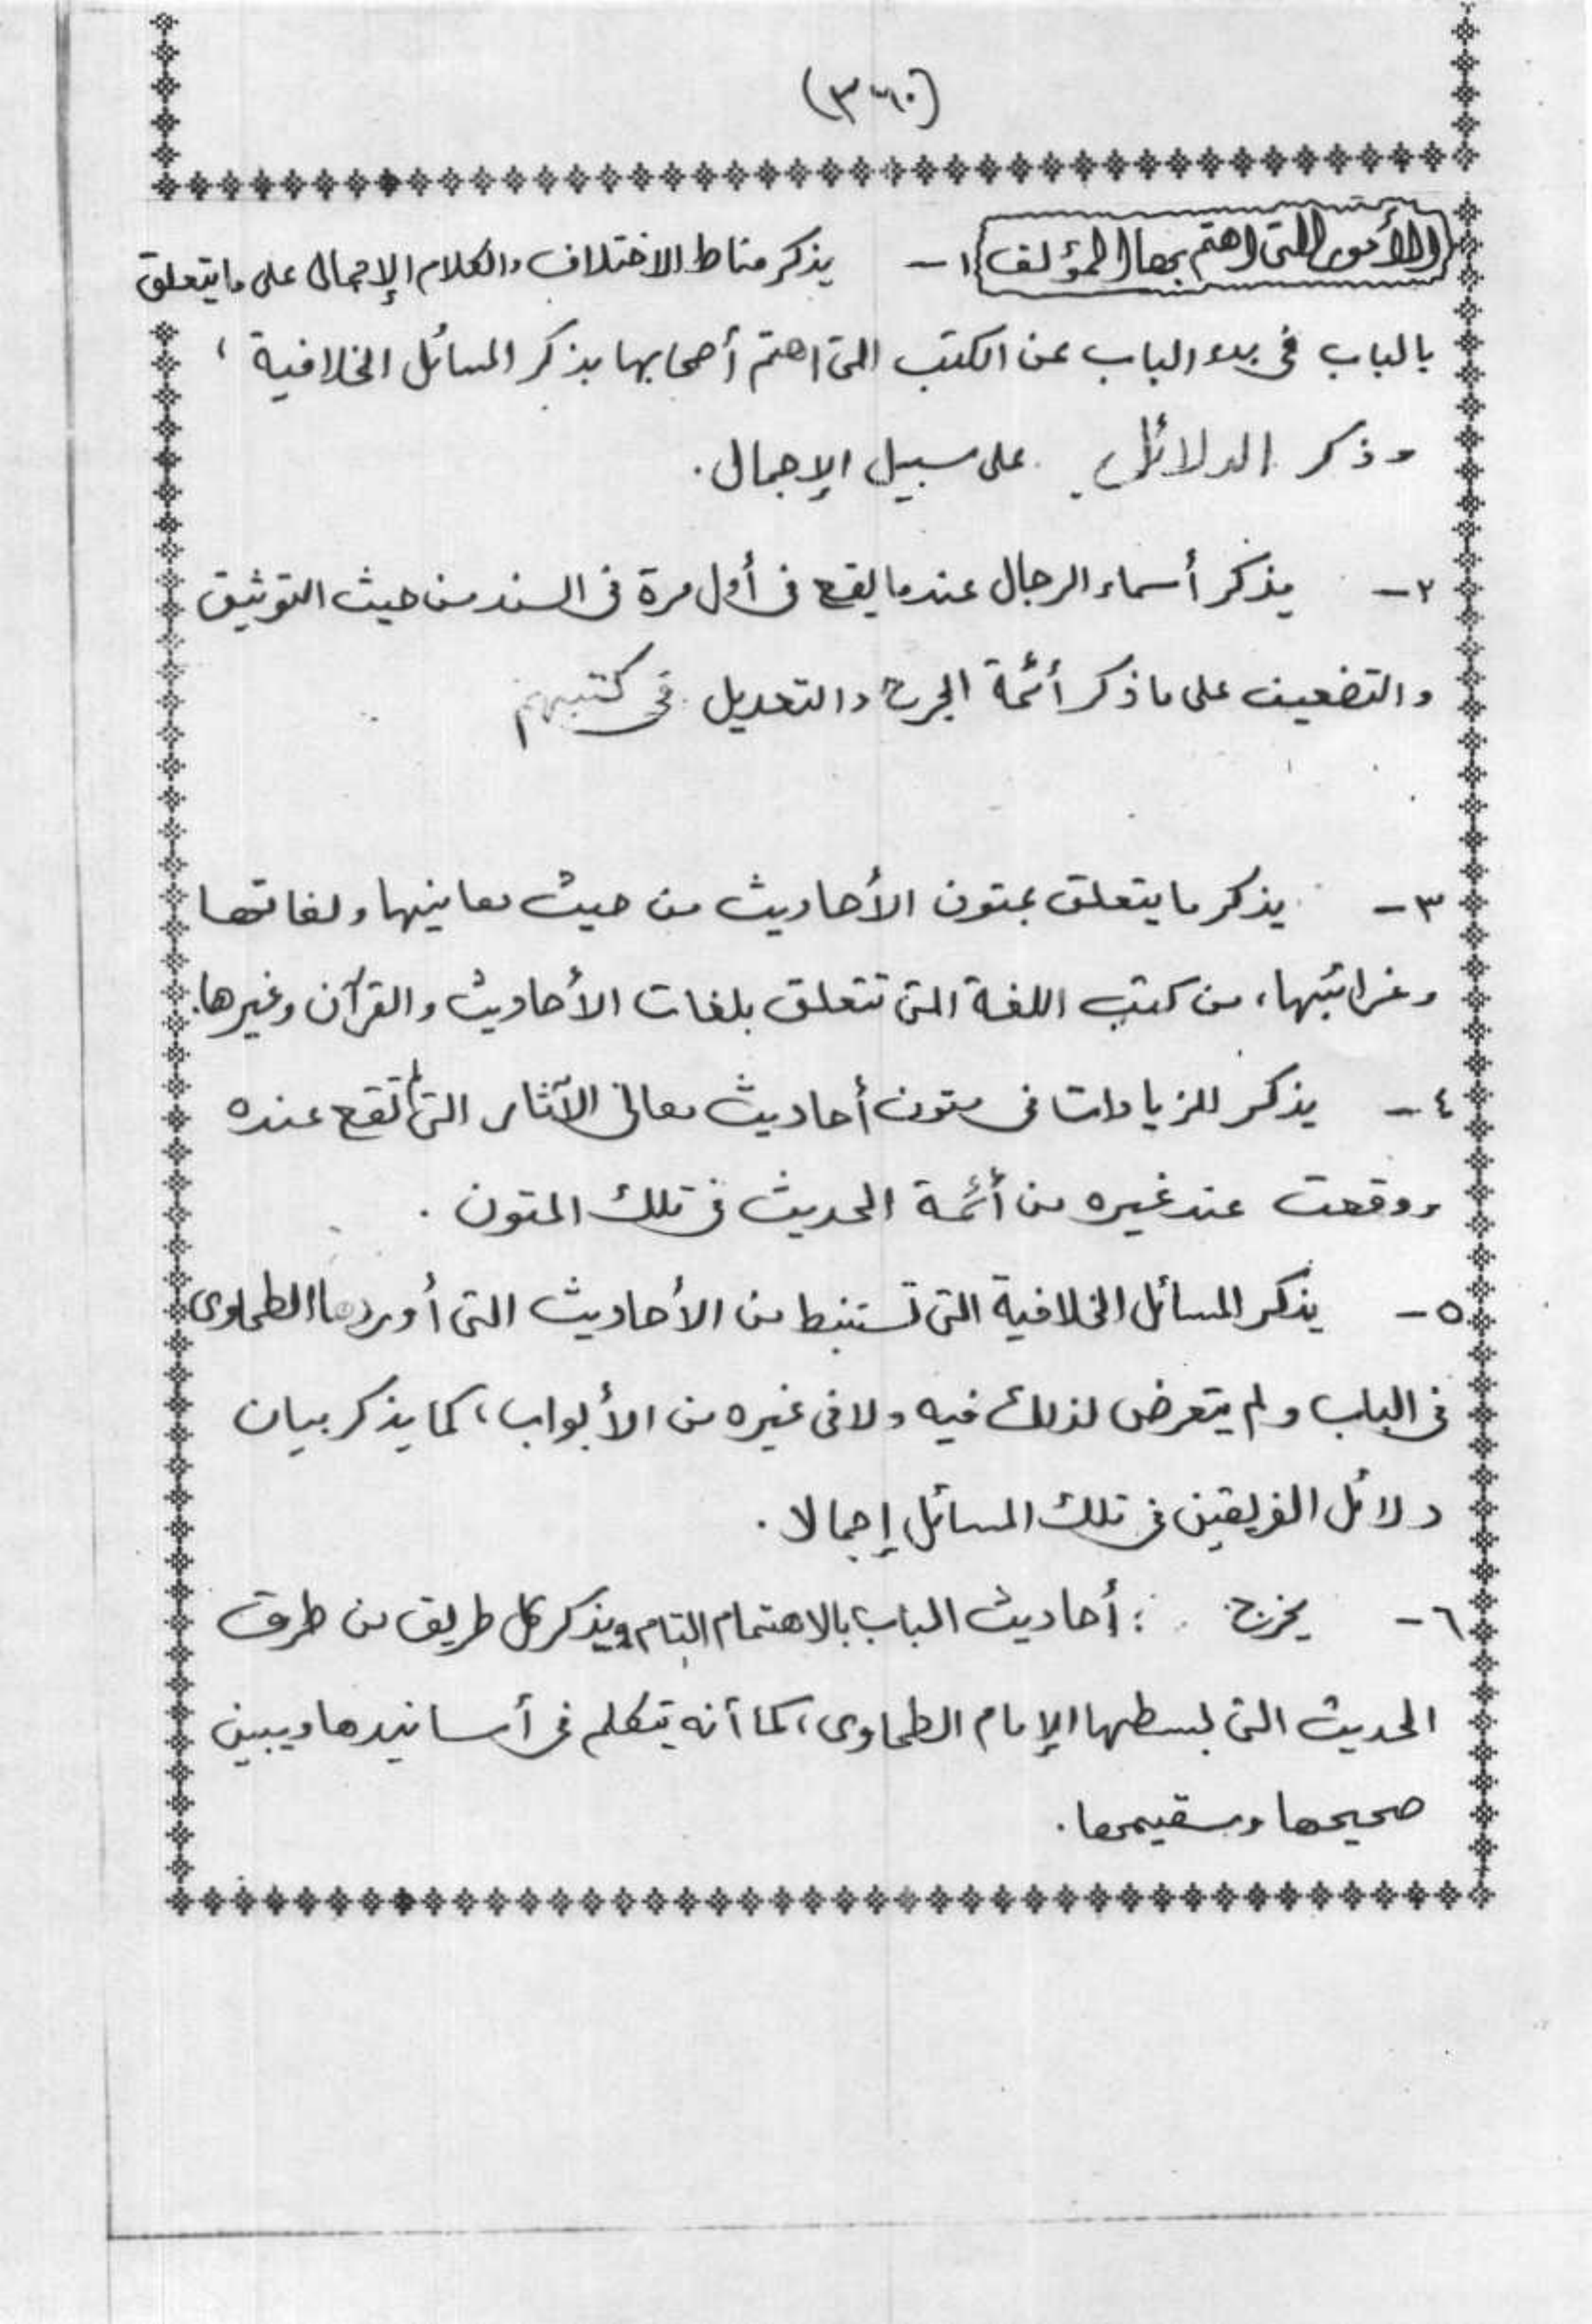 (٣٦٠)
الأمور التى اهتم بها المؤلف ١- يذكر مناط الاختلاف والكلام الإجمالى على ما يتعلق
بالباب فى بدء الباب عن الكتب التى اهتم أصحابها بذكر المسائل الخلافية ،
وذكر الدلائل على سبيل الإجمال .
٢- يذكر أسماء الرجال عندما يقع فى أول مرة فى السند من حيث التوثيق
والتضعيف على ما ذكر أئمة الجرح والتعديل فى كتبهم
٣- يذكر ما يتعلق بمتون الأحاديث من حيث معانيها ولغاتها
وغرائبها ، من كتب اللغة التى تتعلق بلغات الأحاديث والقرآن وغيرها .
٤- يذكر للزيادات فى متون أحاديث معانى الآثار التى لم تقع عنده
ووقعت عند غيره من أئمة الحديث فى تلك المتون .
٥- يذكر المسائل الخلافية التى تستنبط من الأحاديث التى أوردها الطحاوى
فى الباب ولم يتعرض لذلك فيه ولا فى غيره من الأبواب ، كما يذكر بيان
دلائل الفريقين فى تلك المسائل إجمالا .
٦- يخرج : أحاديث الباب بالاهتمام التام ويذكر كل طريق من طرق
الحديث التى بسطها الإمام الطحاوى ، كما أنه يتكلم فى أسانيدها ويبين
صحيحها وسقيمها .